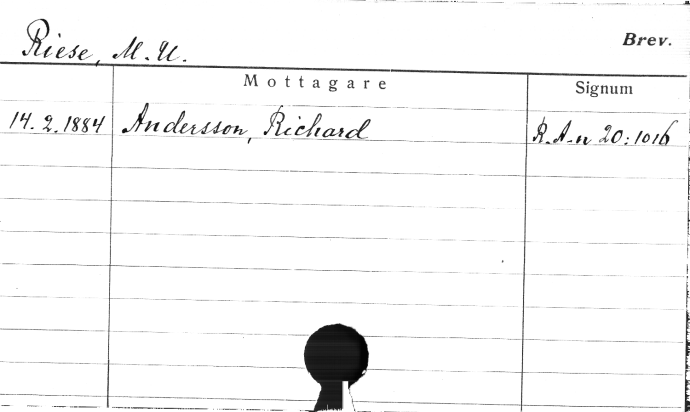 Riese, M. U. Brev.
Mottagare Signum
14.2.1884 Andersson, Richard R.A-n 20:1016